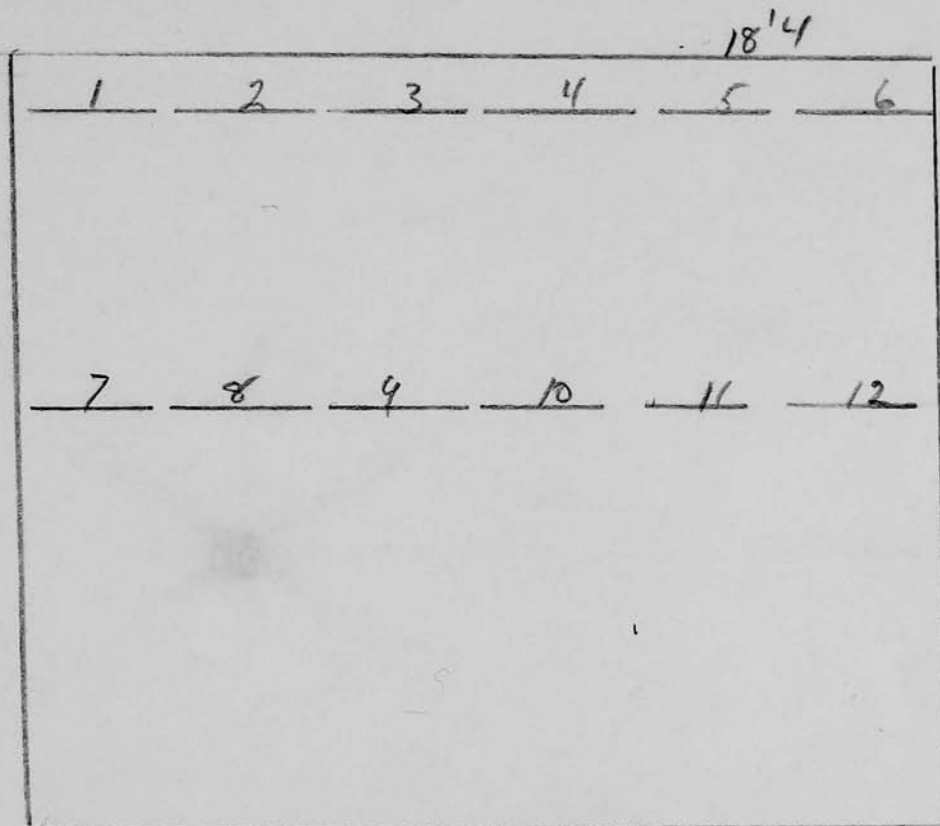 18'4
1 2 3 4 5 6
7 8 9 10 11 12